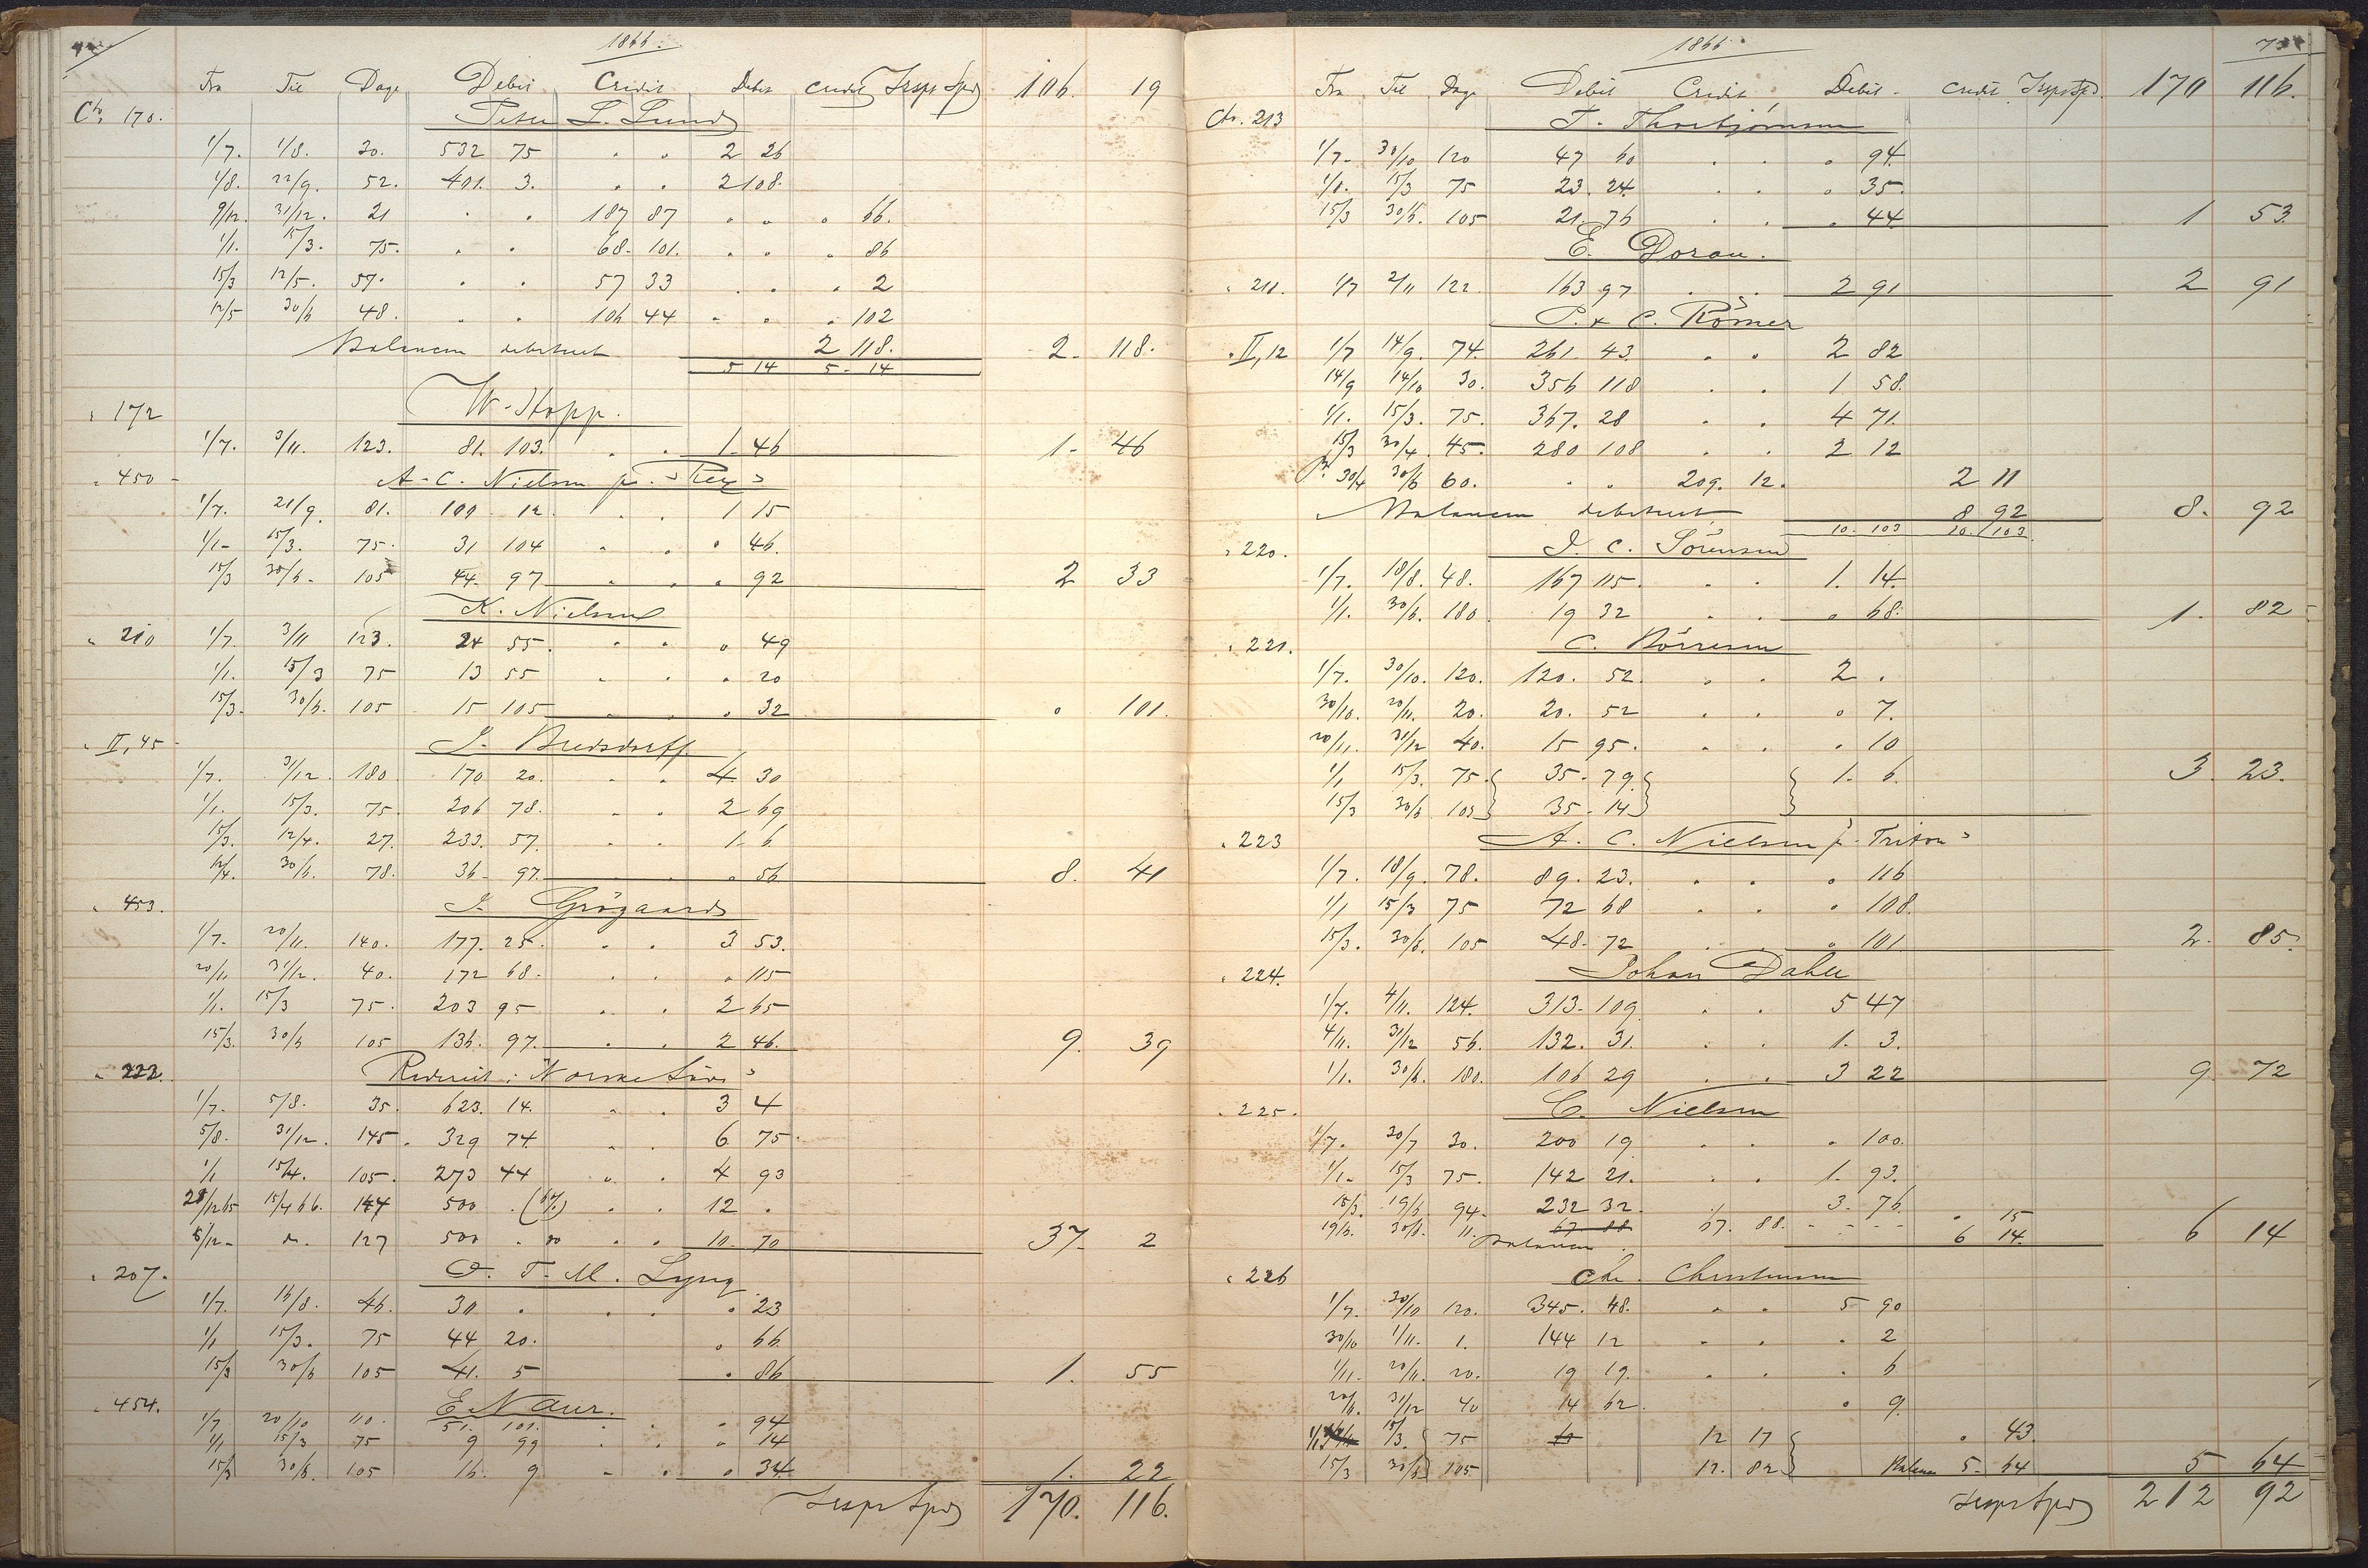 1866.
Fra Til Dage Debit Credit Debit Credit Trspt Spd 106. 19
Cto 170. Peter L. Lund
1/7. 1/8. 30. 532 75 . . 2 26
1/8. 22/9. 52. 401. 3. . . 2 108.
9/12. 31/12. 21 . . 187 87 . . . 66.
1/1. 15/3. 75. . . 68. 101. . . . 86
15/3 12/5. 57. . . 57 33 . . . 2
12/5 30/6 48. . . 106 44 . . . 102
Balancen debiteret 2 118. 2. 118.
5 14 5 - 14
" 172 W. Hopp.
1/7. 3/11. 123. 81. 103. . . 1. 46 1. 46
" 450 - A. C. Nielsen pr. "Rex"
1/7. 21/9. 81. 100 12. . . 1 15
1/1. 15/3. 75. 31 104 . . . 46.
15/3 30/6. 105 44. 97 . . . 92 2 33
K. Nielsen
" 210 1/7. 3/11 123. 24 55. . . . 49
1/1. 15/3 75 13 55 . . . 20
15/3. 30/6. 105 15 105 . . . 32 . 101.
" II, 45 - J. Bredsdorff.
1/7. 31/12. 180 170 20. . . 4. 30
1/1. 15/3. 75. 206 78. . . 2 69
15/3. 12/4. 27. 233. 57. . . 1. 6
12/4. 30/6. 78. 36. 97. . . . 56 8. 41
" 453. J. Grøgaard
1/7. 20/11. 140. 177. 25. . . 3 53.
20/11 31/12. 40. 172 68. . . . 115
1/1. 15/3 75. 203 95 . . 2 65
15/3. 30/6 105 136. 97. . . 2 46. 9. 39
" 222. Rederiet i "Norske Løve"
1/7. 5/8. 35. 623. 14. . . 3 4
5/8. 31/12. 145. 329 74. . . 6 75.
1/1 15/4. 105. 273 44 . . 4 93
28/12 65 15/4 66. 147 500 . (6%) . . 12 .
8/12. do. 127 500 . do . . 10. 70 37. 2
" 207. O. T. M. Lyng
1/7. 16/8. 46. 30 . . . . 23
1/1 15/3. 75 44 20. . 66.
15/3 30/6 105 41. 5 . 86 1. 55
" 454. E. Naur.
1/7 20/10 110. 51. 101. . . . 94
1/1 15/3 75 9 99 . . . 14
15/3 30/6. 105 16. 9 . . . 34. 1. 22
Trspt Spd 170. 116.
1866.
Fra Til Dage Debit Credit Debit. Credit Trspt Spd. 170 116.
Ct. 213 T. Thorbjørnsen
1/7. 30/10 120 47 60 . . . 94.
1/1. 15/3 75 23. 24. . . . 35.
15/3 30/6. 105 21. 76 . . . 44. 1 53.
E. Doran.
" 211. 1/7 2/11 122 163 97 . . 2 91 2 91
P. & C. Rømer
" II, 12 1/7 14/9. 74. 261 43. . . 2 82
14/9 14/10 30. 356 118 . . 1 58.
1/1. 15/3. 75. 367. 28 . . 4 71.
15/3 30/4. 45. 280 108 . . 2 12
30/4 30/6 60. . . 209. 12. 2 11
Balancen debiteret 8 92 8. 92
10. 103 10. 103
" 220. J. C. Sørensen
1/7. 18/8. 48. 167 115. . . 1. 14.
1/1. 30/6. 180 19 32 . . . 68. 1. 82
" 221. C. Børresen
1/7. 30/10. 120. 120. 52. . . 2 .
30/10. 20/11. 20. 20. 52 . . . 7.
20/11. 31/12 40. 15 95. . . . 10
1/1 15/3. 75. 35. 79. 1. 6. 3. 23.
15/3 30/6 105 35. 14
" 223 A. C. Nielsen pr. "Triton"
1/7. 18/9. 78. 89. 23. . . . 116
1/1 15/3 75 72 68 . . . 108.
15/3. 30/6. 105 48. 72 . . . 101 2. 85.
" 224. Johan Dahll
1/7. 4/11. 124. 313. 109 . . 5 47
4/11. 31/12 56. 132. 31. . . 1. 3.
1/1. 30/6. 180. 106 29 . . 3 22 9. 72
" 225. C. Nielsen
1/7. 30/7 30. 200 19 . . . 100.
1/1. 15/3 75. 142 21. . . 1. 93.
15/3. 19/6. 94. 232 32. 3. 76.
19/6. 30/6. 11. 67 88 67. 88. . 15
Balancen 6 14. 6 14
" 226 Chr. Christensen
1/7. 30/10 120. 345. 48. . . 5 90
30/10 1/11. 1. 144 12 . . . 2
1/11. 20/11. 20. 19 19. . . . 6
20/11. 31/12 40 14 62. . 9.
1/1 15/3. 75 12 17 . 43.
15/3 30/6 105 12. 82 Balance 5. 64 5 64
Trspt Spd 212 92